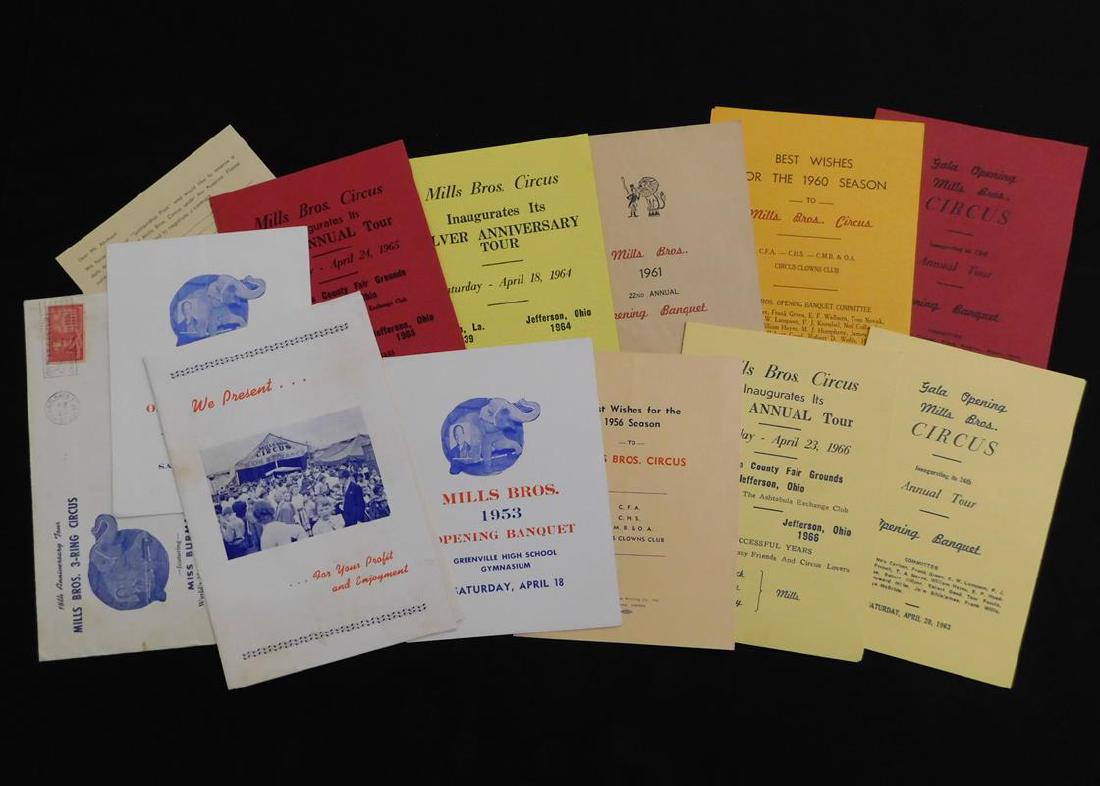 Mills Bros. Circus
Inaugurates Its
ANNUAL Tour
April 24, 1965
County Fair Grounds
Ohio
Exchange Club
Jefferson, Ohio
1965
Mills Bros. Circus
Inaugurates Its
LVER ANNIVERSARY
TOUR
aturday - April 18, 1964
La. Jefferson, Ohio
39 1964
Mills Bros.
1961
22ND ANNUAL
Banquet
BEST WISHES
OR THE 1960 SEASON
TO
Mills Bros. Circus
C.F.A. — C.H.S. — C.M.B. & O.A.
CIRCUS CLOWNS CLUB
OPENING BANQUET COMMITTEE
Gala Opening
Mills Bros.
CIRCUS
Inaugurating its
Annual Tour
Opening Banquet
18th Anniversary Tour
MILLS BROS. 3-RING CIRCUS
—featuring—
MISS BURMA
We Present . . .
MILLS BROS
CIRCUS
. . . For Your Profit
and Enjoyment
MILLS BROS.
1953
OPENING BANQUET
GREENVILLE HIGH SCHOOL
GYMNASIUM
SATURDAY, APRIL 18
st Wishes for the
1956 Season
—TO—
S BROS. CIRCUS
C.F.A.
C.H.S.
M.B. & O.A.
S CLOWNS CLUB
lls Bros. Circus
Inaugurates Its
ANNUAL Tour
day - April 23, 1966
County Fair Grounds
Jefferson, Ohio
The Ashtabula Exchange Club
Jefferson, Ohio
1966
UCCESSFUL YEARS
any Friends And Circus Lovers
Mills.
Gala Opening
Mills Bros.
CIRCUS
Inaugurating its 24th
Annual Tour
Opening Banquet
COMMITTEE
SATURDAY, APRIL 20, 1963